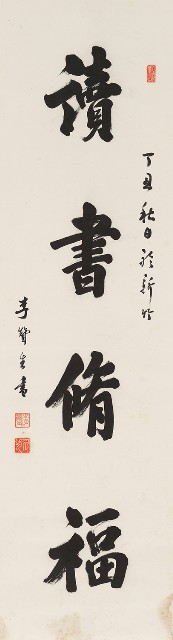 丁丑秋日於新竹
讀書脩福
李賢主書